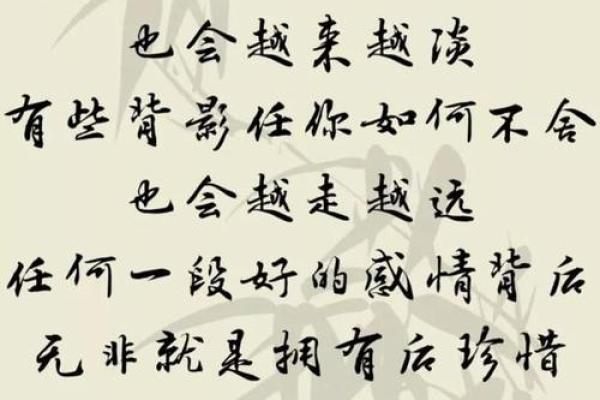 也会越来越淡
有些背影任你如何不舍
也会越走越远
任何一段好的感情背后
无非就是拥有后珍惜